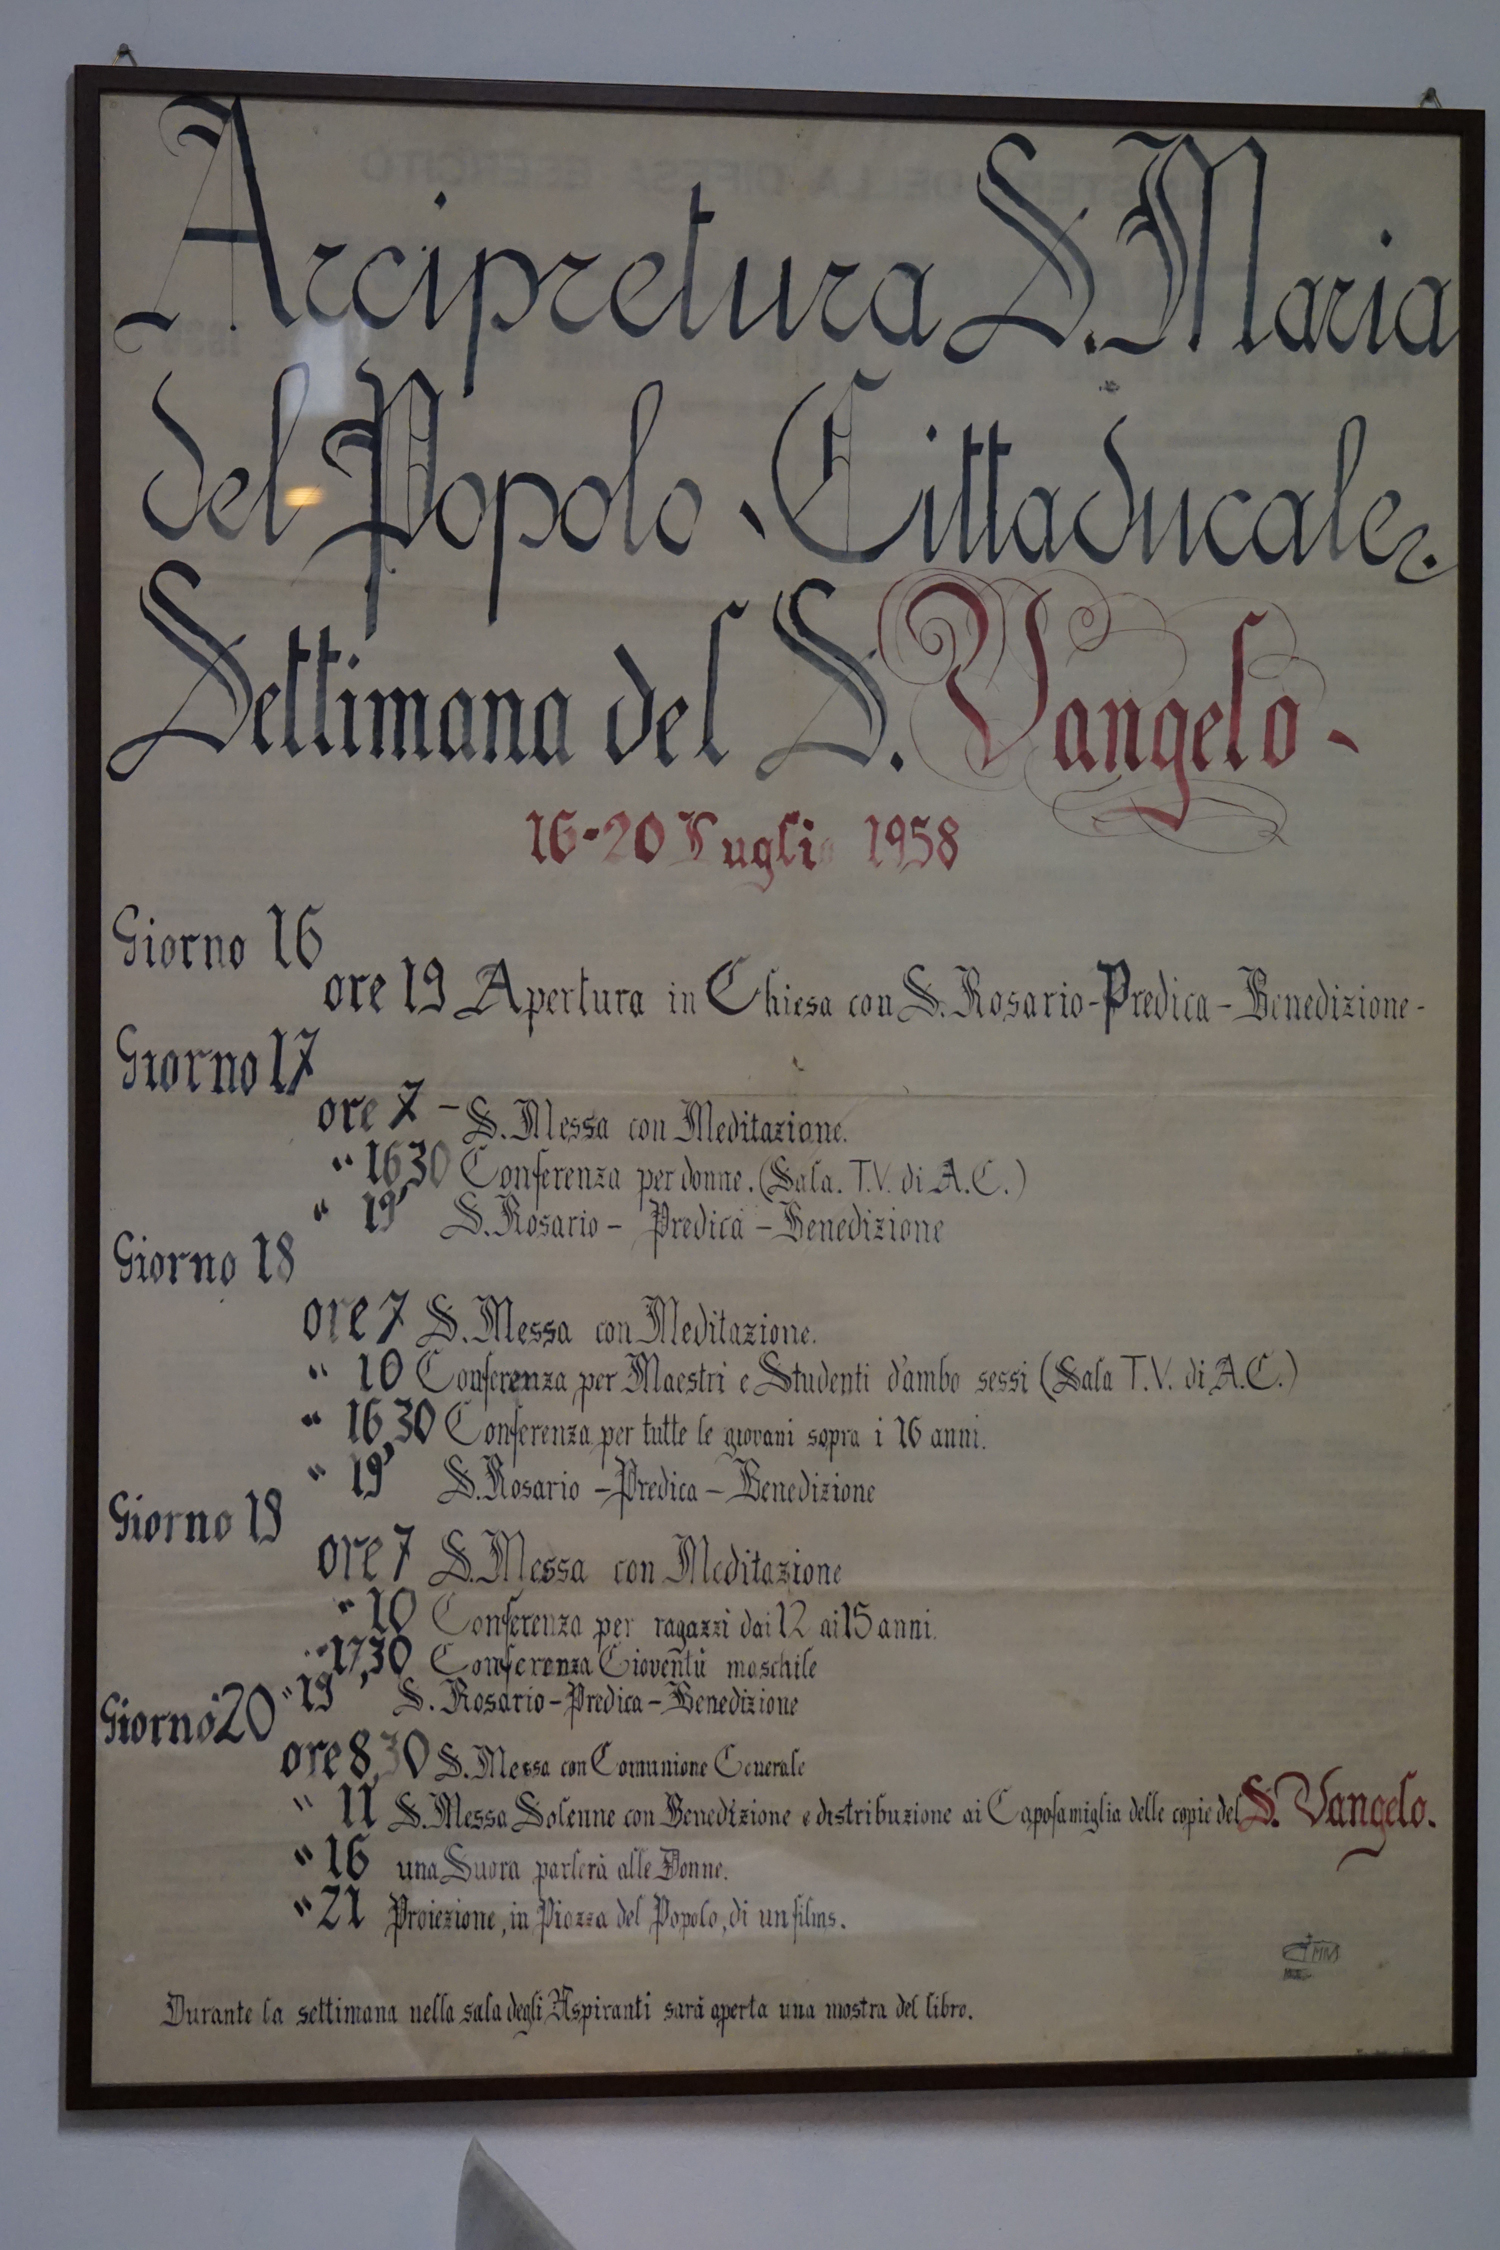 Arcipretura S. Maria
del Popolo - Cittaducale.
Settimana del S. Vangelo -
16-20 Luglio 1958
Giorno 16
ore 19 Apertura in Chiesa con S. Rosario - Predica - Benedizione -
Giorno 17
ore 7 - S. Messa con Meditazione.
" 16,30 Conferenza per donne. (Sala. T.V. di A.C.)
" 19 S. Rosario - Predica - Benedizione
Giorno 18
ore 7 S. Messa con Meditazione.
" 10 Conferenza per Maestri e Studenti d'ambo sessi (Sala T.V. di A.C.)
" 16,30 Conferenza per tutte le giovani sopra i 16 anni.
" 19 S. Rosario - Predica - Benedizione
Giorno 19
ore 7 S. Messa con Meditazione
" 10 Conferenza per ragazzi dai 12 ai 15 anni.
" 17,30 Conferenza Gioventù maschile
" 19 S. Rosario - Predica - Benedizione
Giorno 20
ore 8,30 S. Messa con Comunione Generale
" 11 S. Messa Solenne con Benedizione e distribuzione ai Capofamiglia delle copie del S. Vangelo.
" 16 una Suora parlerà alle Donne.
" 21 Proiezione, in Piazza del Popolo, di un films.
Durante la settimana nella sala degli Aspiranti sarà aperta una mostra del libro.